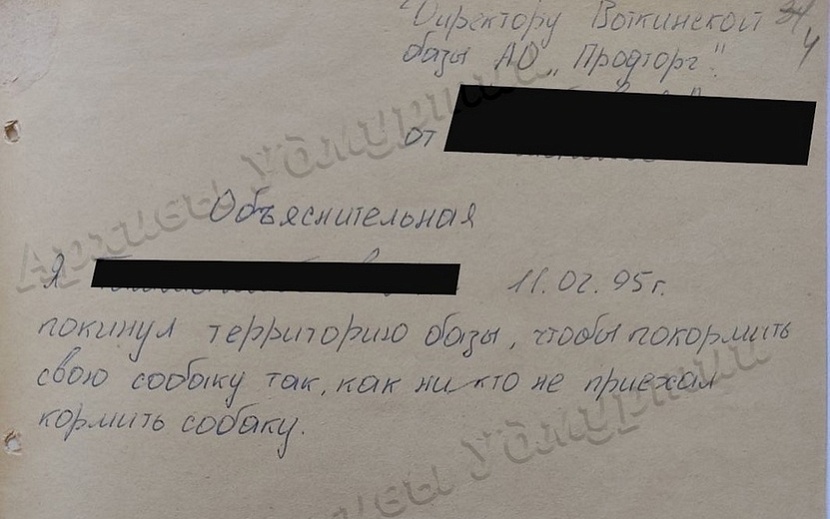 Директору Воткинской
базы АО „Продторг".
от
Объяснительная
Я 11.02.95г.
покинул территорию базы, чтобы покормить
свою собаку так, как ни кто не приехал
кормить собаку.
Архивы Удмуртии
Архивы Удмуртии